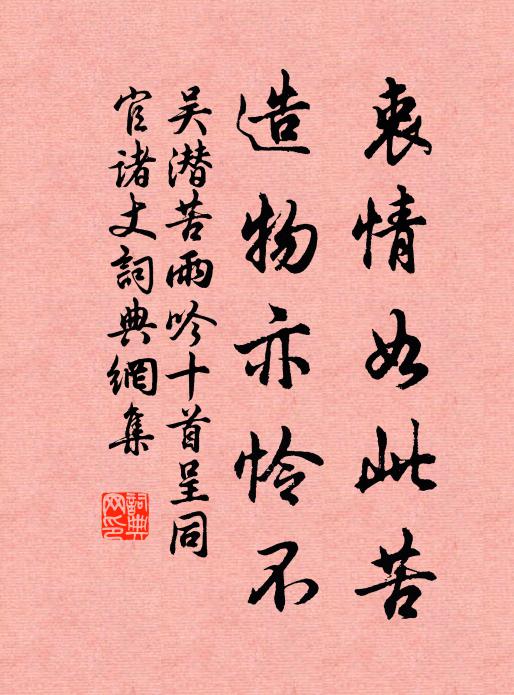 衷情如此苦
造物亦怜不
吴潜苦雨吟十首呈同
官诸丈詞典網集
詞典
网印